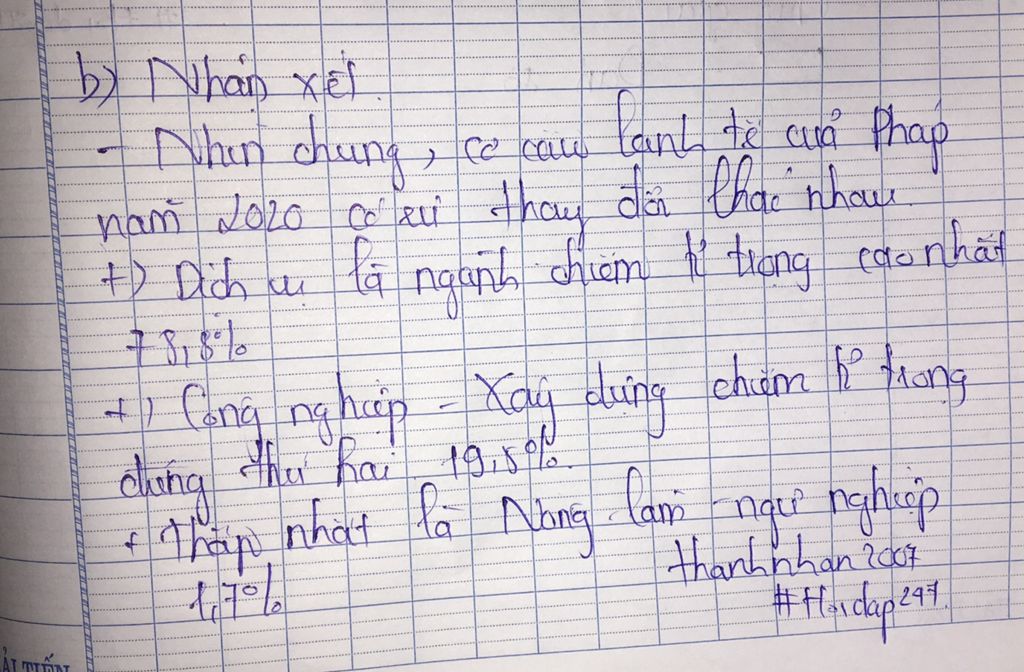 b) Nhận xét.
- Nhìn chung, cơ cấu kinh tế của Pháp
năm 2020 có sự thay đổi khác nhau.
+) Dịch vụ là ngành chiếm tỉ trọng cao nhất
78,8%
+) Công nghiệp - Xây dựng chiếm tỉ trọng
đứng thứ hai 19,5%.
+ Thấp nhất là Nông lâm - ngư nghiệp
1,7%
thanhnhan2007
#Hoidap247.
ẢI TIẾN